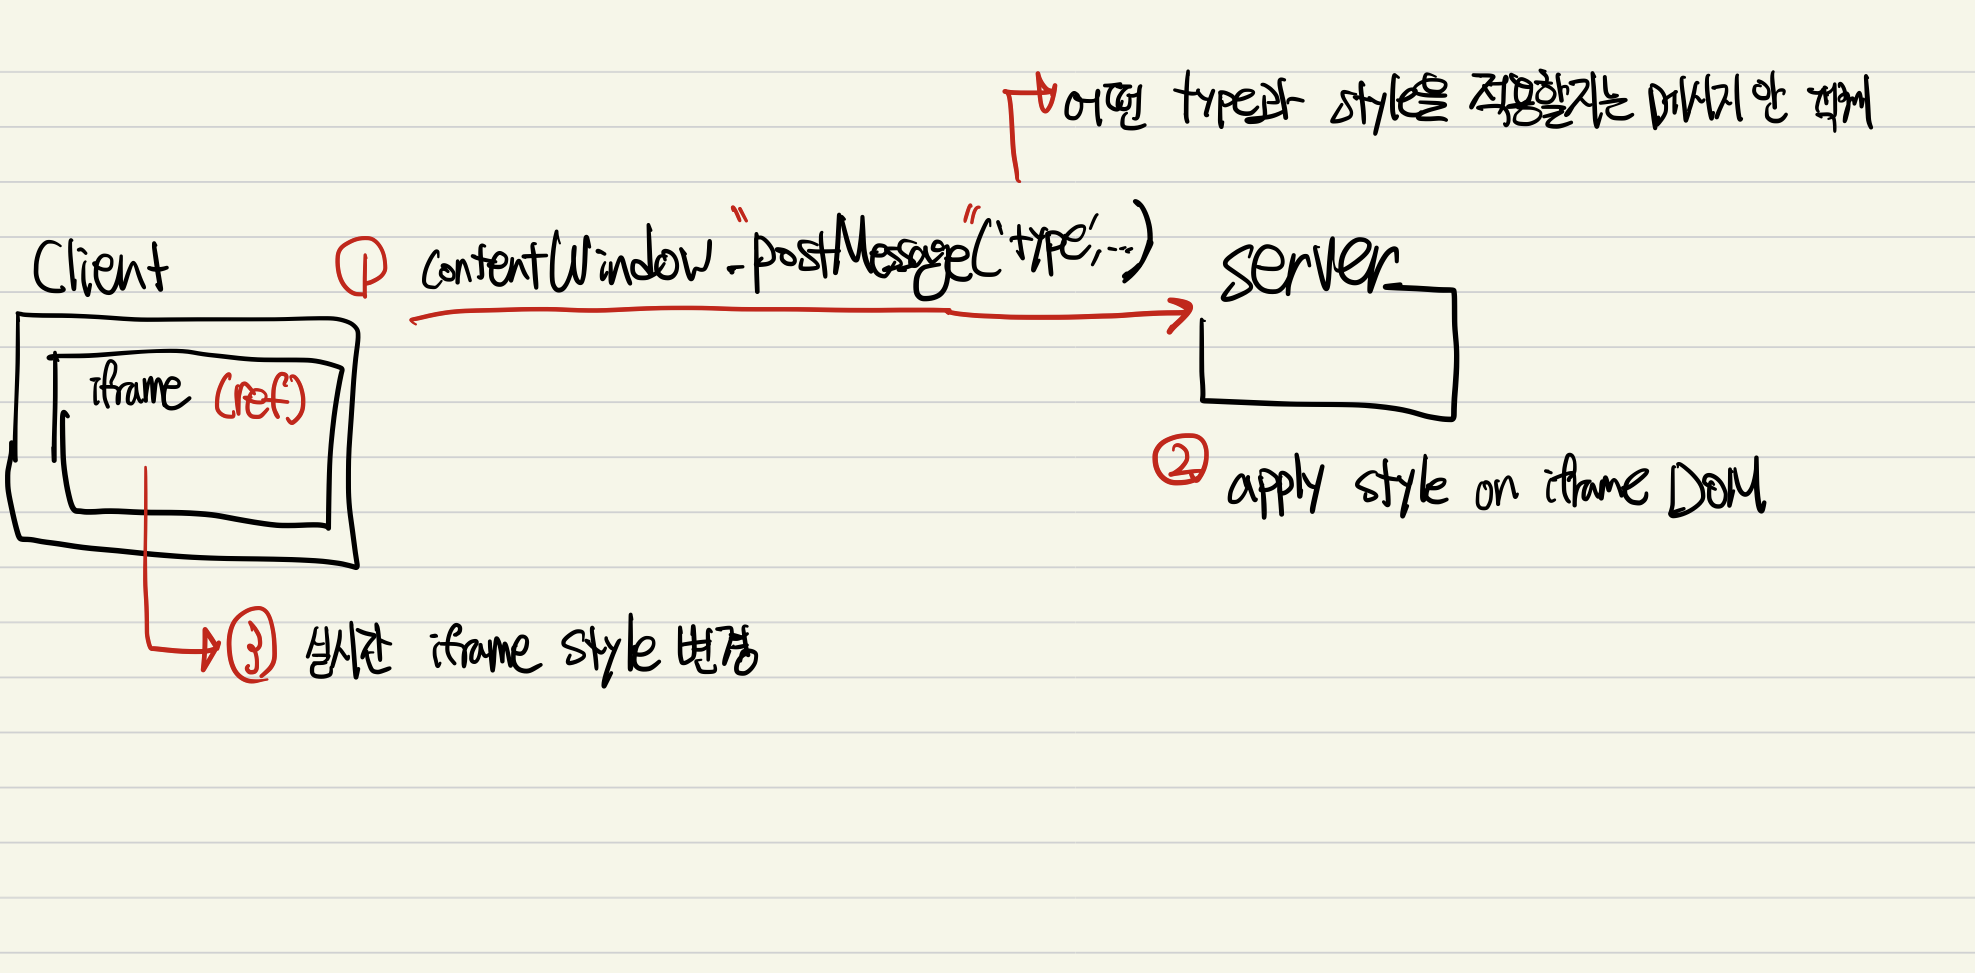 어떤 type과 style을 적용할지는 메시지 안 객체
Client
① contentWindow.postMessage("type",...)
server
iframe (ref)
② apply style on iframe DOM
③ 실시간 iframe style 변경